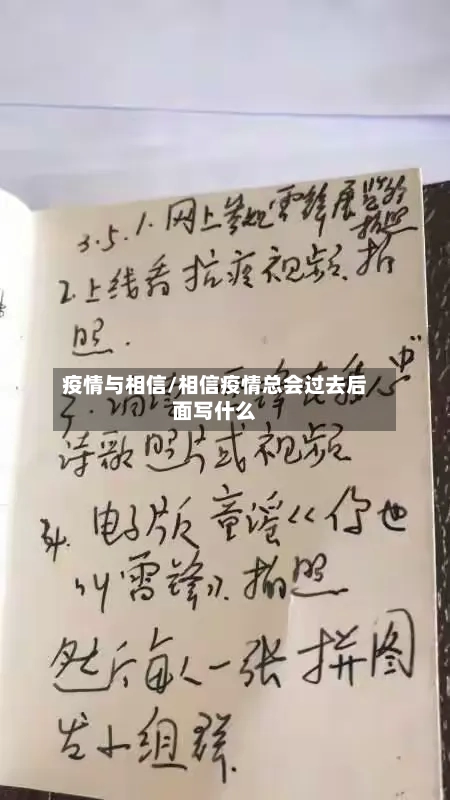 3.5.1.网上参观雷锋展览馆
拍照
2.上线看抗疫视频.拍
照.
疫情与相信/相信疫情总会过去后
面写什么
诗歌照片或视频
电子版童谣<<你也
叫雷锋>>.拍照
然后每人一张拼图
发小组群.